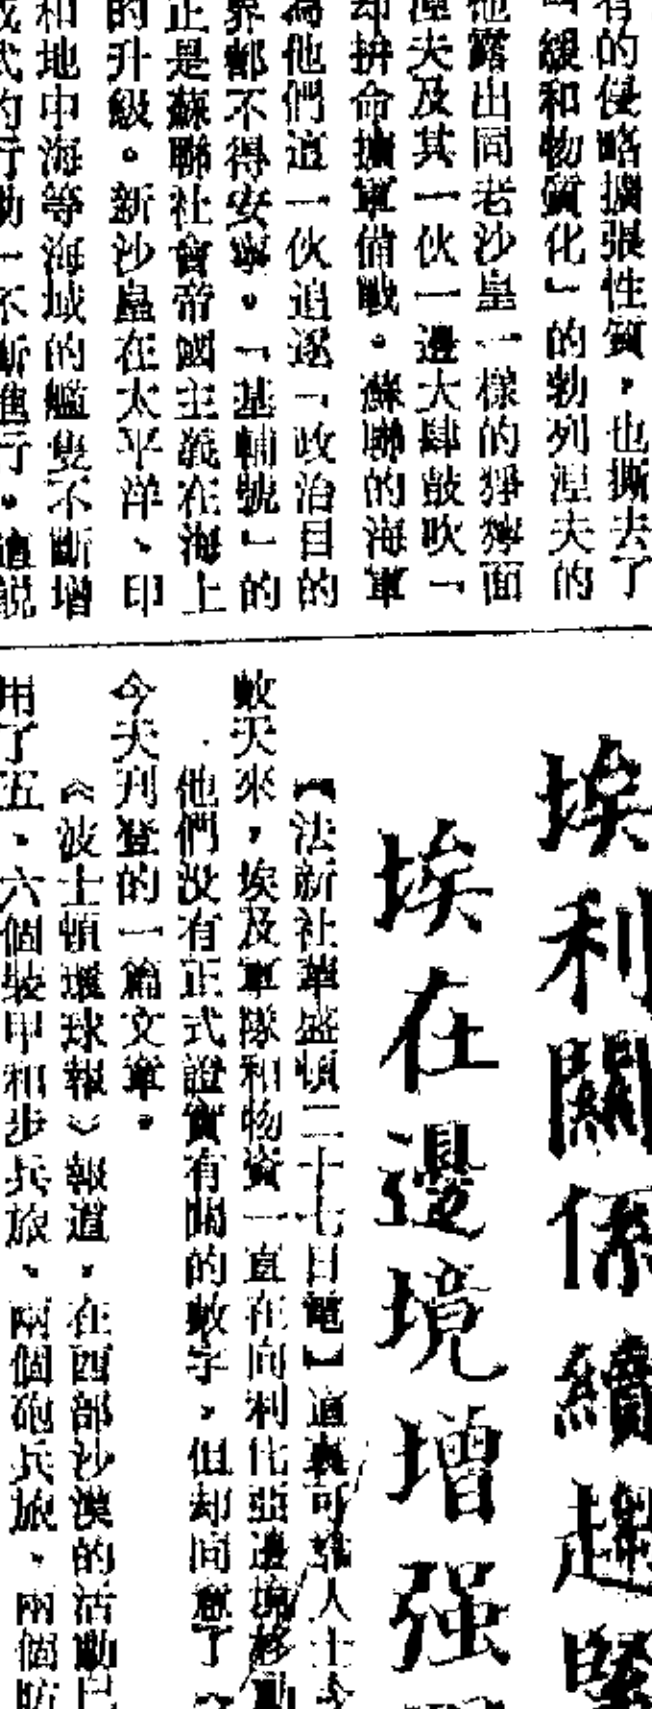 有的侵略擴張性質，也撕去了
緩和物質化」的勃列涅夫的
他露出同老沙皇一樣的猙獰面
涅夫及其一伙一邊大肆鼓吹「
却拚命擴軍備戰。蘇聯的海軍
為他們這一伙追逐「政治目的
界都不得安寧。「基輔號」的
正是蘇聯社會帝國主義在海上
的升級。新沙皇在太平洋、印
和地中海等海域的艦隻不斷增
式的行動一不斷進行。這説
埃利關係續趨緊
埃在邊境增强
【法新社華盛頓二十七日電】這裏可靠人士今
數天來，埃及軍隊和物資一直在向利比亞邊境移動
他們没有正式證實有關的數字，但却同意了《
今天刋登的一篇文章。
《波士頓環球報》報道，在西部沙漠的活動已
用了五、六個裝甲和步兵旅、兩個砲兵旅、兩個防